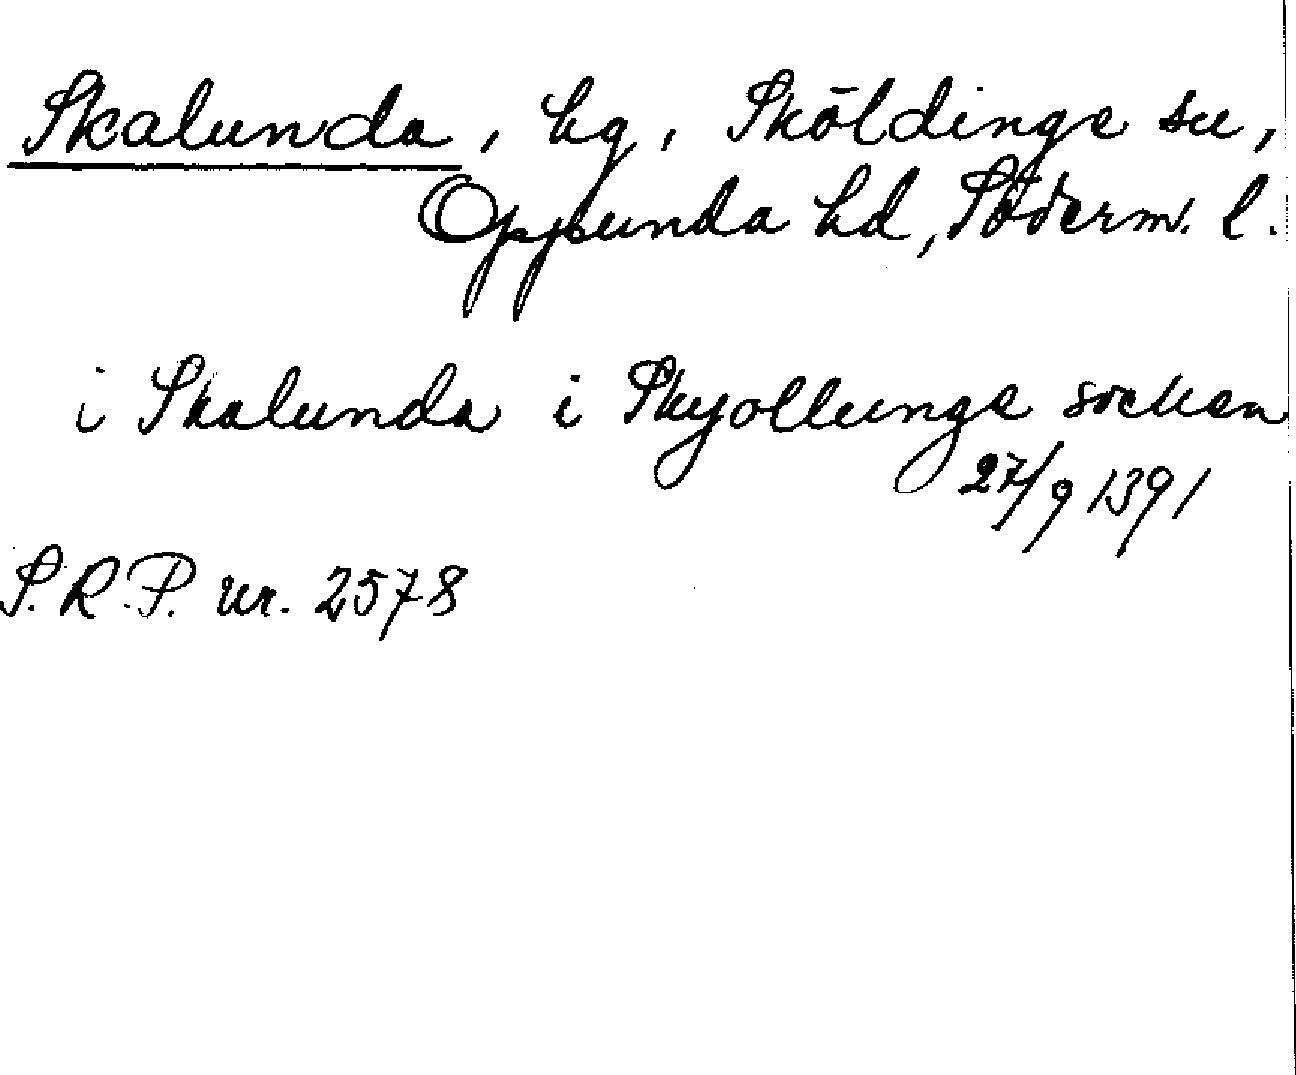 Skalunda, hg, Sköldinge sn,
Oppunda hd, Söderm. l.
i Skalunda i Skyollunge socken
27/9 1391
S.R.P. nr. 2578